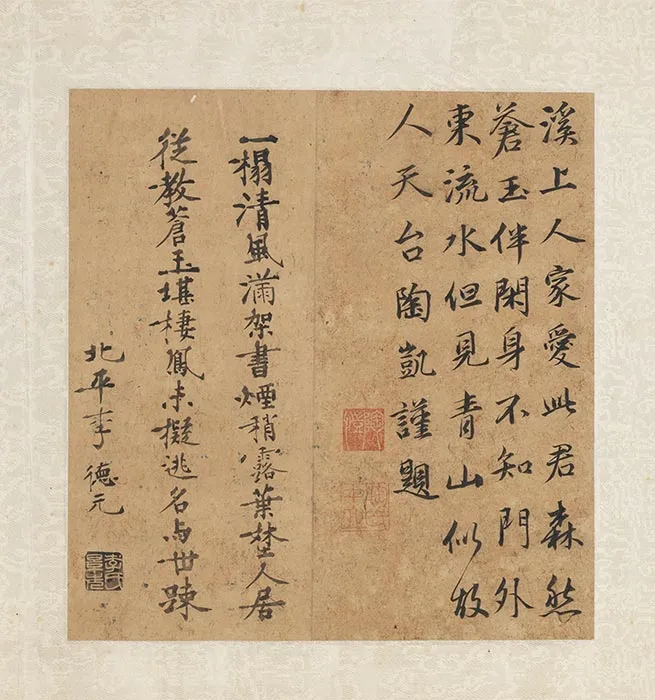 溪上人家愛此君森然
蒼玉伴閑身不知門外
東流水但見青山似故
人天台陶凱謹題
一榻清風滿架書煙稍露葉埜人居
從教蒼玉堪棲鳳未擬逃名与世踈
北平李德元